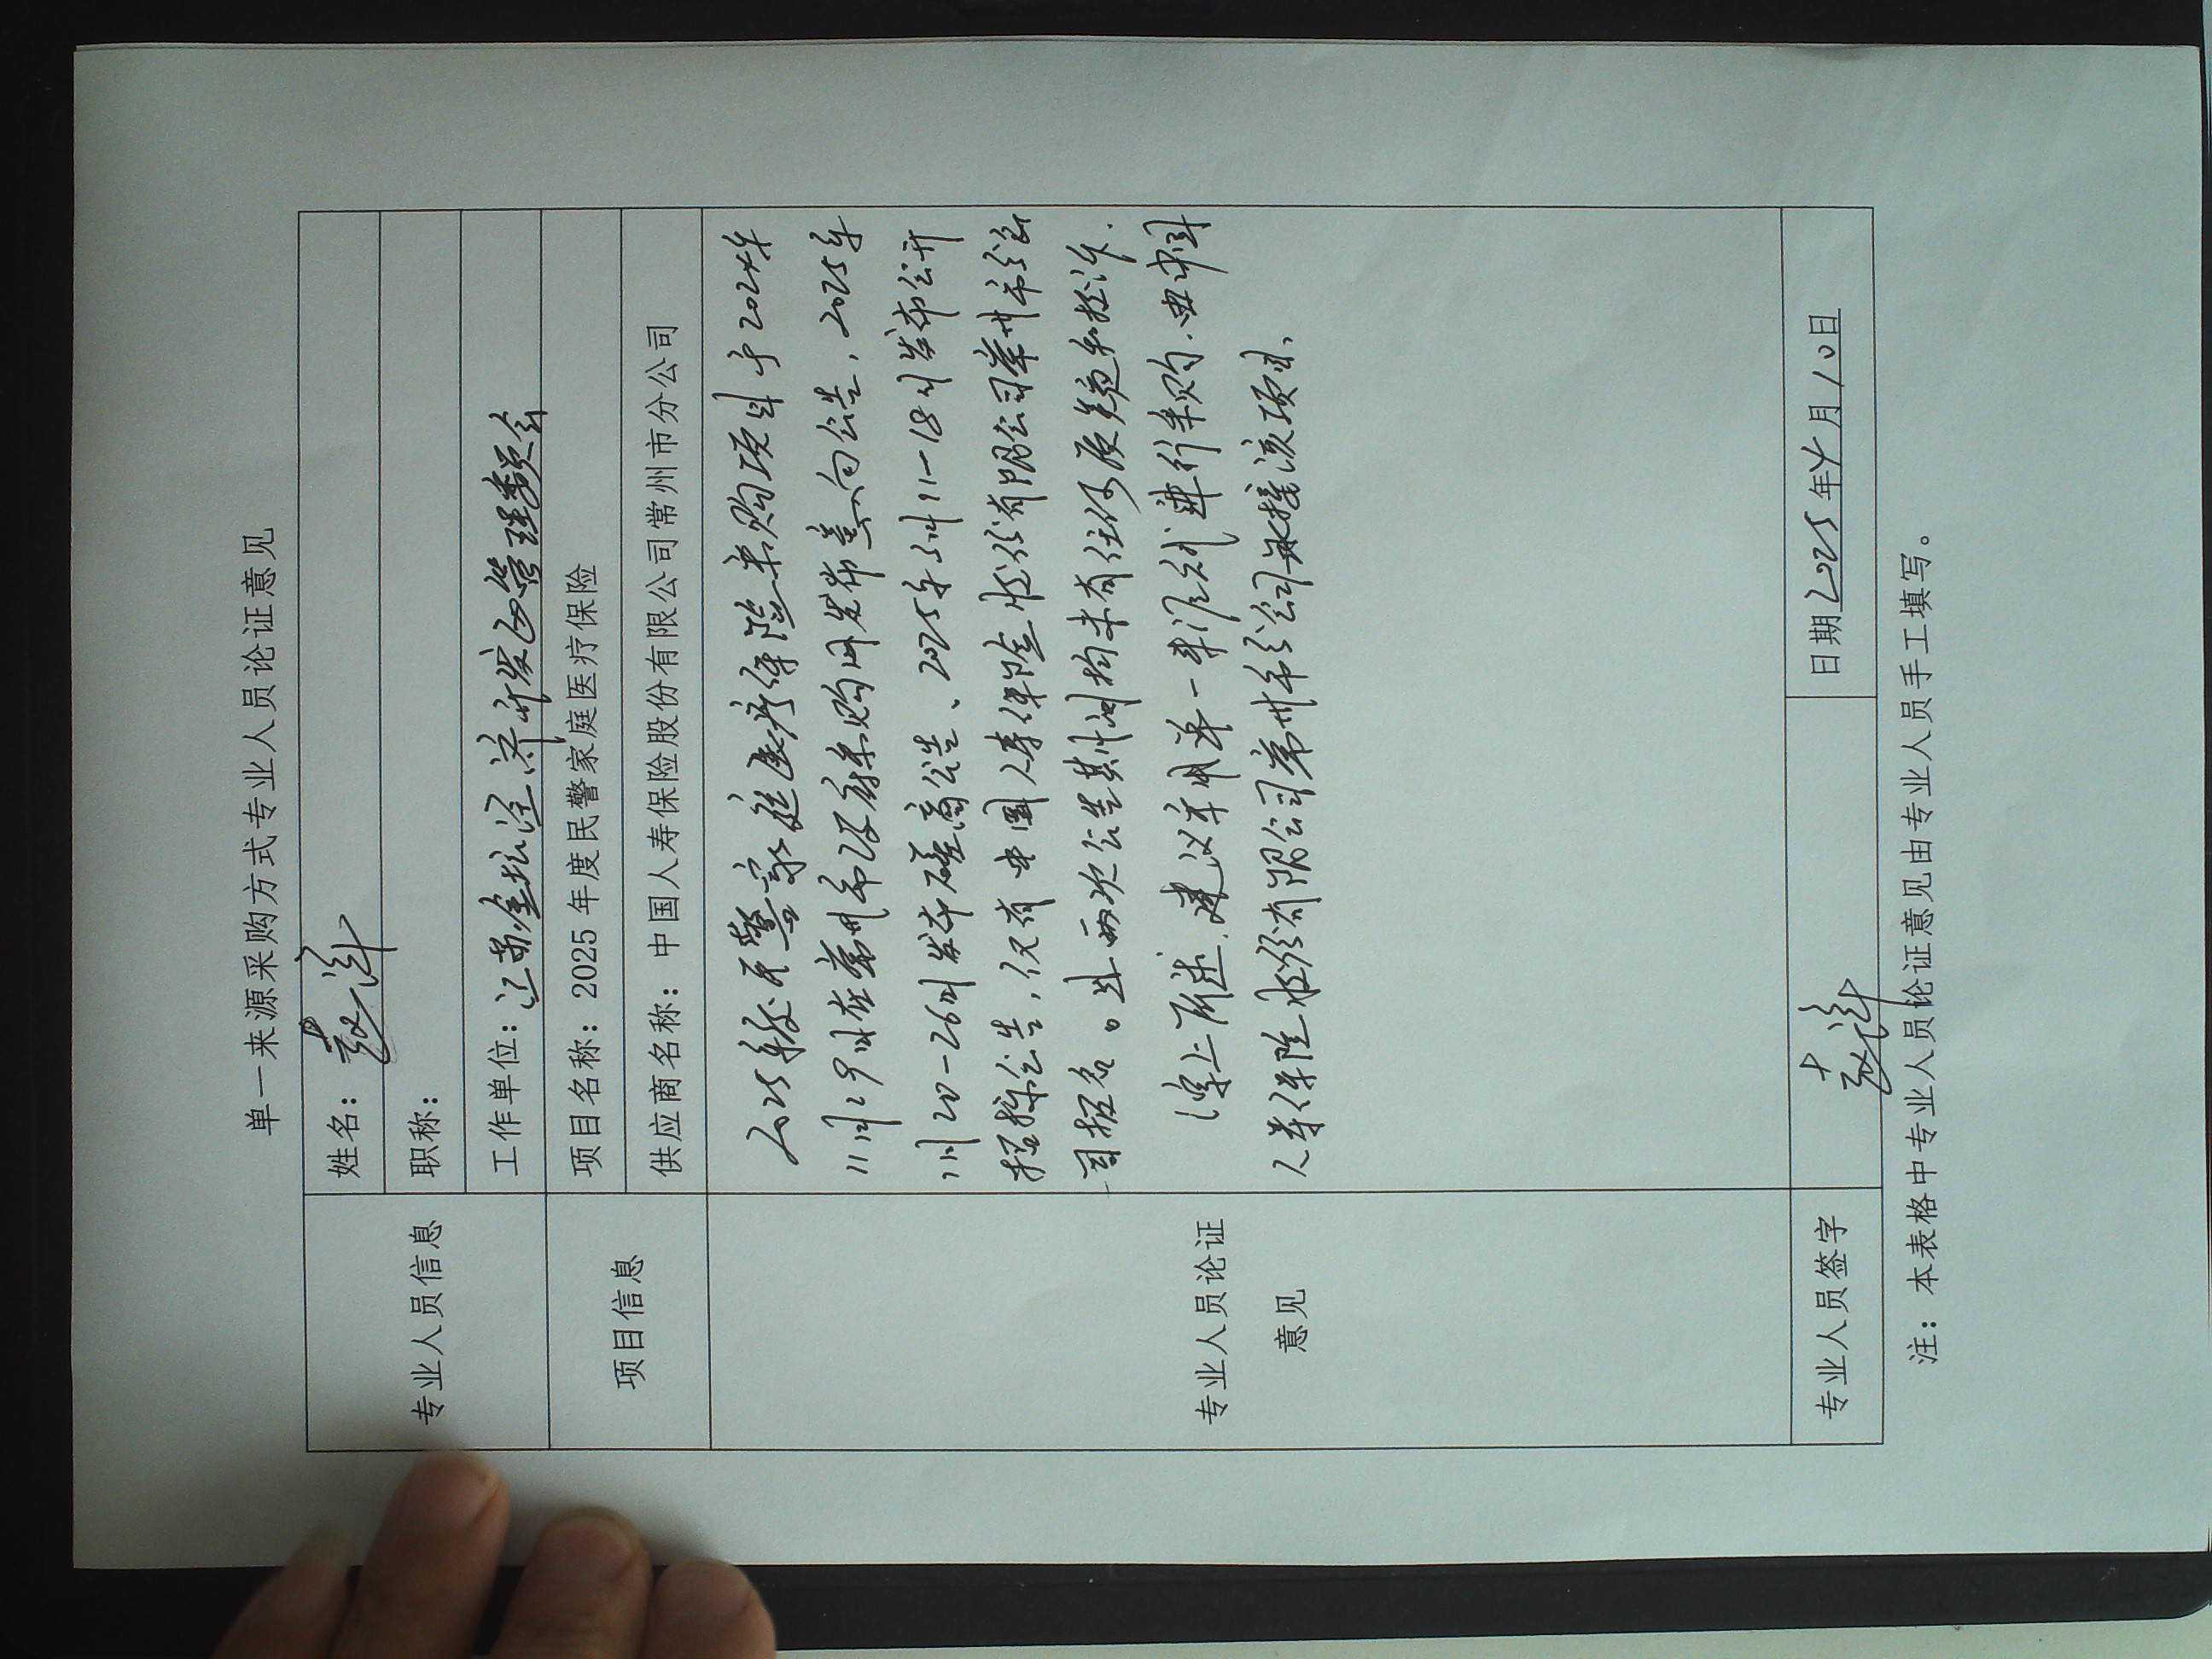 单一来源采购方式专业人员论证意见
专业人员信息
姓名：赵洋
职称：
工作单位：江苏金坛经济开发区管理委员会
项目信息
项目名称：2025年度民警家庭医疗保险
供应商名称：中国人寿保险股份有限公司常州市分公司
专业人员论证
意见
2025年度民警家庭医疗保险采购项目于2024年
11月29日在常州市政府采购网发布意向公告，2025年
20-26日发布磋商公告、2025年3月11-18日发布公开
招标公告，仅有中国人寿保险股份有限公司常州市分公
司报名。且两次公告期间均未有任何质疑和投诉.
综上所述,建议采用单一来源方式进行采购.由中国
人寿保险股份有限公司常州市分公司承接该项目.
专业人员签字
赵洋
日期2025年4月10日
注：本表格中专业人员论证意见由专业人员手工填写。